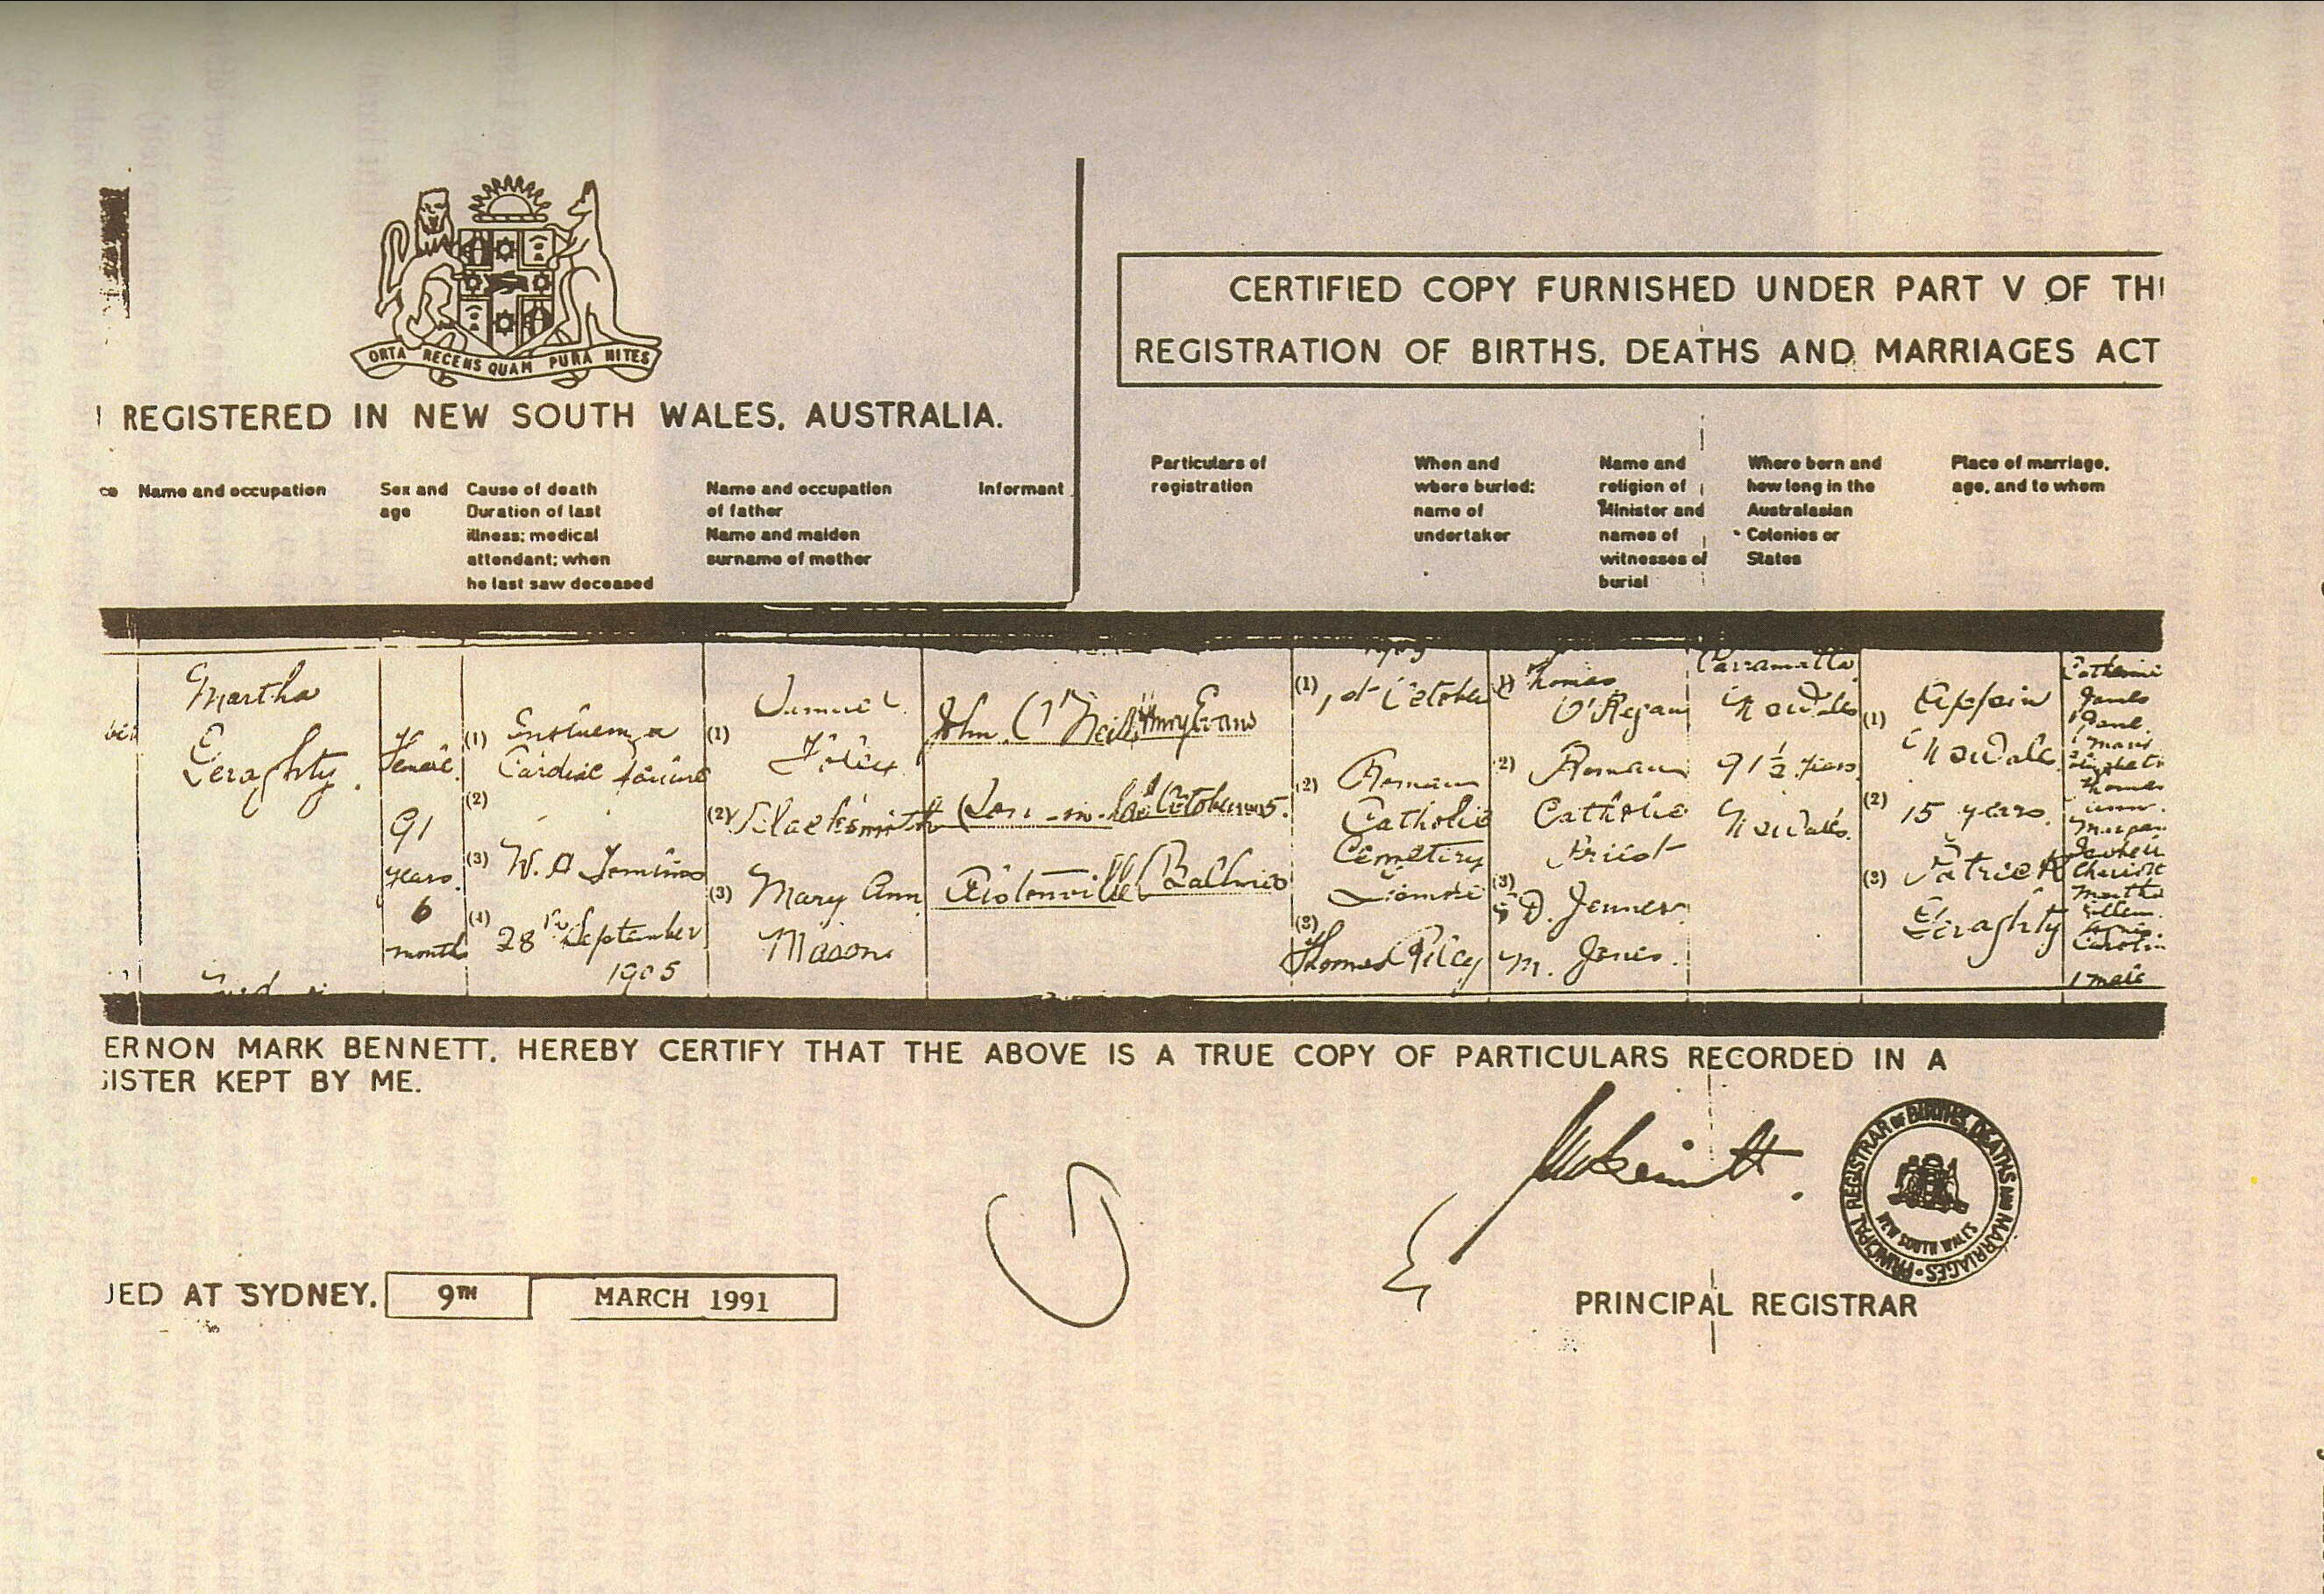 ORTA RECENS QUAM PURA NITES
REGISTERED IN NEW SOUTH WALES, AUSTRALIA.
CERTIFIED COPY FURNISHED UNDER PART V OF TH
REGISTRATION OF BIRTHS, DEATHS AND MARRIAGES ACT
ce
Name and occupation
Sex and
age
Cause of death
Duration of last
illness; medical
attendant; when
he last saw deceased
Name and occupation
of father
Name and maiden
surname of mother
Informant
Particulars of
registration
When and
where buried;
name of
undertaker
Name and
religion of
Minister and
names of
witnesses of
burial
Where born and
how long in the
Australasian
Colonies or
States
Place of marriage,
age, and to whom
Martha
Geraghty.
Female.
91
years.
6
months
(1) Influenza
Cardiac failure
(2)
(3) W. A
(4) 28th September
1905
(1) Samuel
(2) Blacksmith
(3) Mary Ann
Mason
John Henry Evans
Son-in-law October 1905.
Ballina
(1) 1st October
(2) Roman
Catholic
Cemetery
Lismore
(3)
Thomas Riley
(1) Thomas
O'Regan
(2) Roman
Catholic
Priest
(3) D. Jenner
M. Jones.
Parramatta
N S Wales
91½ years
N S Wales.
(1) Appin
N S Wales
(2) 15 years.
(3) Patrick
Geraghty
Catherine
James
Jane
Thomas
Ann.
Martha
Carolin
1 male
ERNON MARK BENNETT, HEREBY CERTIFY THAT THE ABOVE IS A TRUE COPY OF PARTICULARS RECORDED IN A
ISTER KEPT BY ME.
UED AT SYDNEY,
9TH
MARCH 1991
PRINCIPAL REGISTRAR
PRINCIPAL REGISTRAR OF BIRTHS, DEATHS AND MARRIAGES
NEW SOUTH WALES